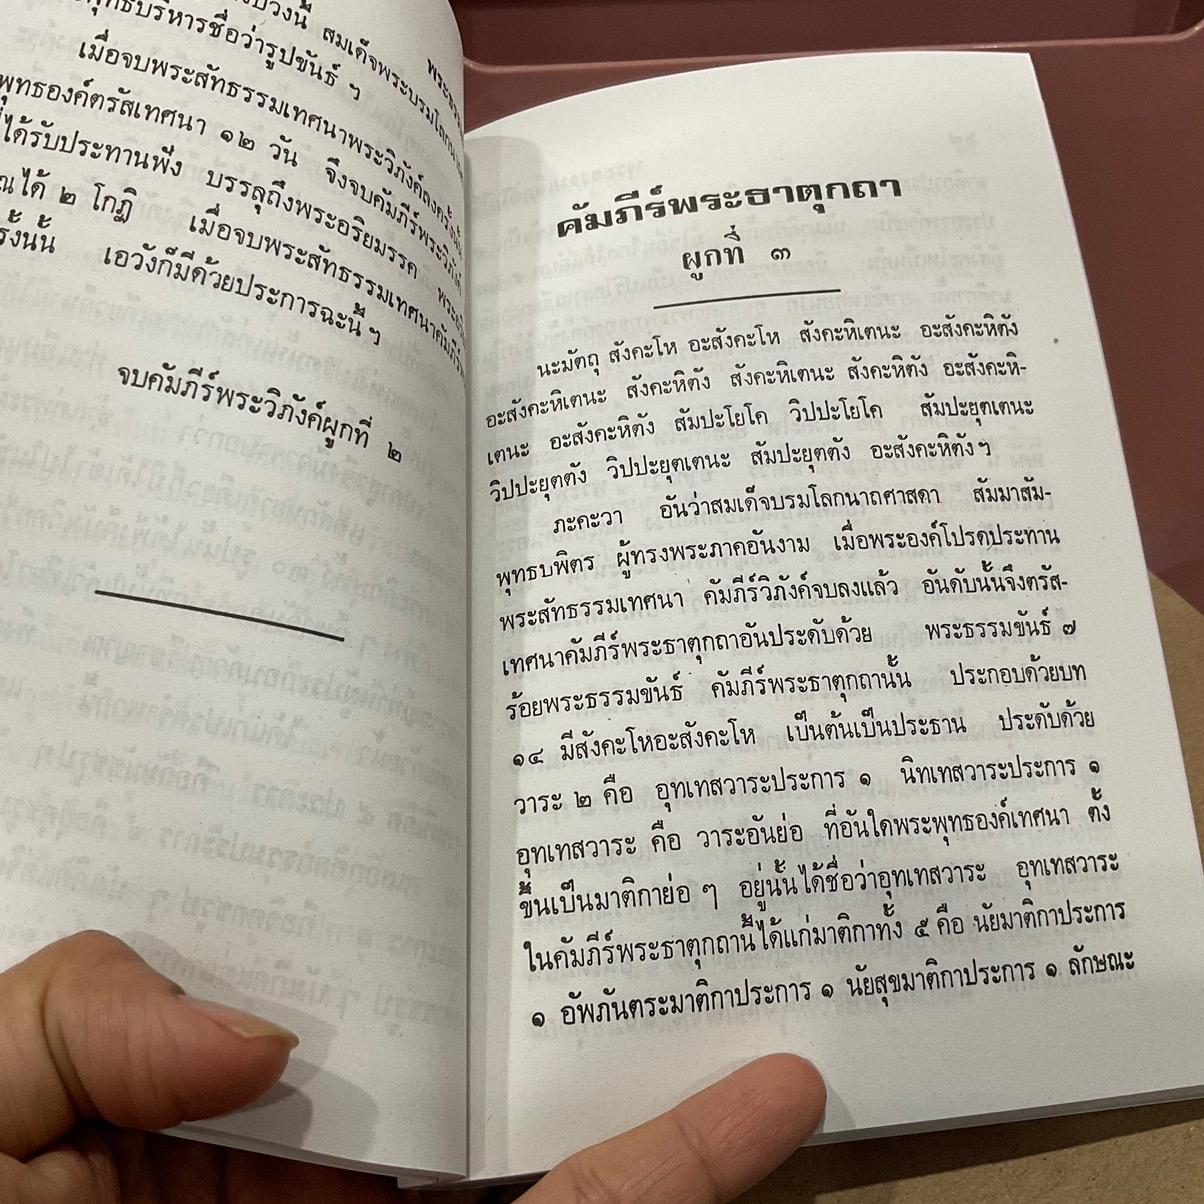 พุทธบริหารชื่อว่ารูปขันธ์ ฯ
เมื่อจบพระสัทธรรมเทศนาพระวิภังค์ลงครั้งนั้น
พุทธองค์ตรัสเทศนา ๑๒ วัน จึงจบคัมภีร์พระวิภังค์
ได้รับประทานฟัง บรรลุถึงพระอริยมรรค
ณได้ ๒ โกฏิ เมื่อจบพระสัทธรรมเทศนาคัมภีร์
รั้งนั้น เอวังก็มีด้วยประการฉะนี้ ฯ
จบคัมภีร์พระวิภังค์ผูกที่ ๒
คัมภีร์พระธาตุกถา
ผูกที่ ๓
นะมัตถุ สังคะโห อะสังคะโห สังคะหิเตนะ อะสังคะหิตัง
อะสังคะหิเตนะ สังคะหิตัง สังคะหิเตนะ สังคะหิตัง อะสังคะหิ-
เตนะ อะสังคะหิตัง สัมปะโยโค วิปปะโยโค สัมปะยุตเตนะ
วิปปะยุตตัง วิปปะยุตเตนะ สัมปะยุตตัง อะสังคะหิตัง ฯ
ภะคะวา อันว่าสมเด็จบรมโลกนาถศาสดา สัมมาสัม-
พุทธบพิตร ผู้ทรงพระภาคอันงาม เมื่อพระองค์โปรดประทาน
พระสัทธรรมเทศนา คัมภีร์วิภังค์จบลงแล้ว อันดับนั้นจึงตรัส-
เทศนาคัมภีร์พระธาตุกถาอันประดับด้วย พระธรรมขันธ์ ๗
ร้อยพระธรรมขันธ์ คัมภีร์พระธาตุกถานั้น ประกอบด้วยบท
๑๔ มีสังคะโหอะสังคะโห เป็นต้นเป็นประธาน ประดับด้วย
วาระ ๒ คือ อุทเทสวาระประการ ๑ นิทเทสวาระประการ ๑
อุทเทสวาระ คือ วาระอันย่อ ที่อันใดพระพุทธองค์เทศนา ตั้ง
ขึ้นเป็นมาติกาย่อ ๆ อยู่นั้นได้ชื่อว่าอุทเทสวาระ อุทเทสวาระ
ในคัมภีร์พระธาตุกถานี้ได้แก่มาติกาทั้ง ๕ คือ นัยมาติกาประการ
๑ อัพภันตระมาติกาประการ ๑ นัยสุขมาติกาประการ ๑ ลักษณะ